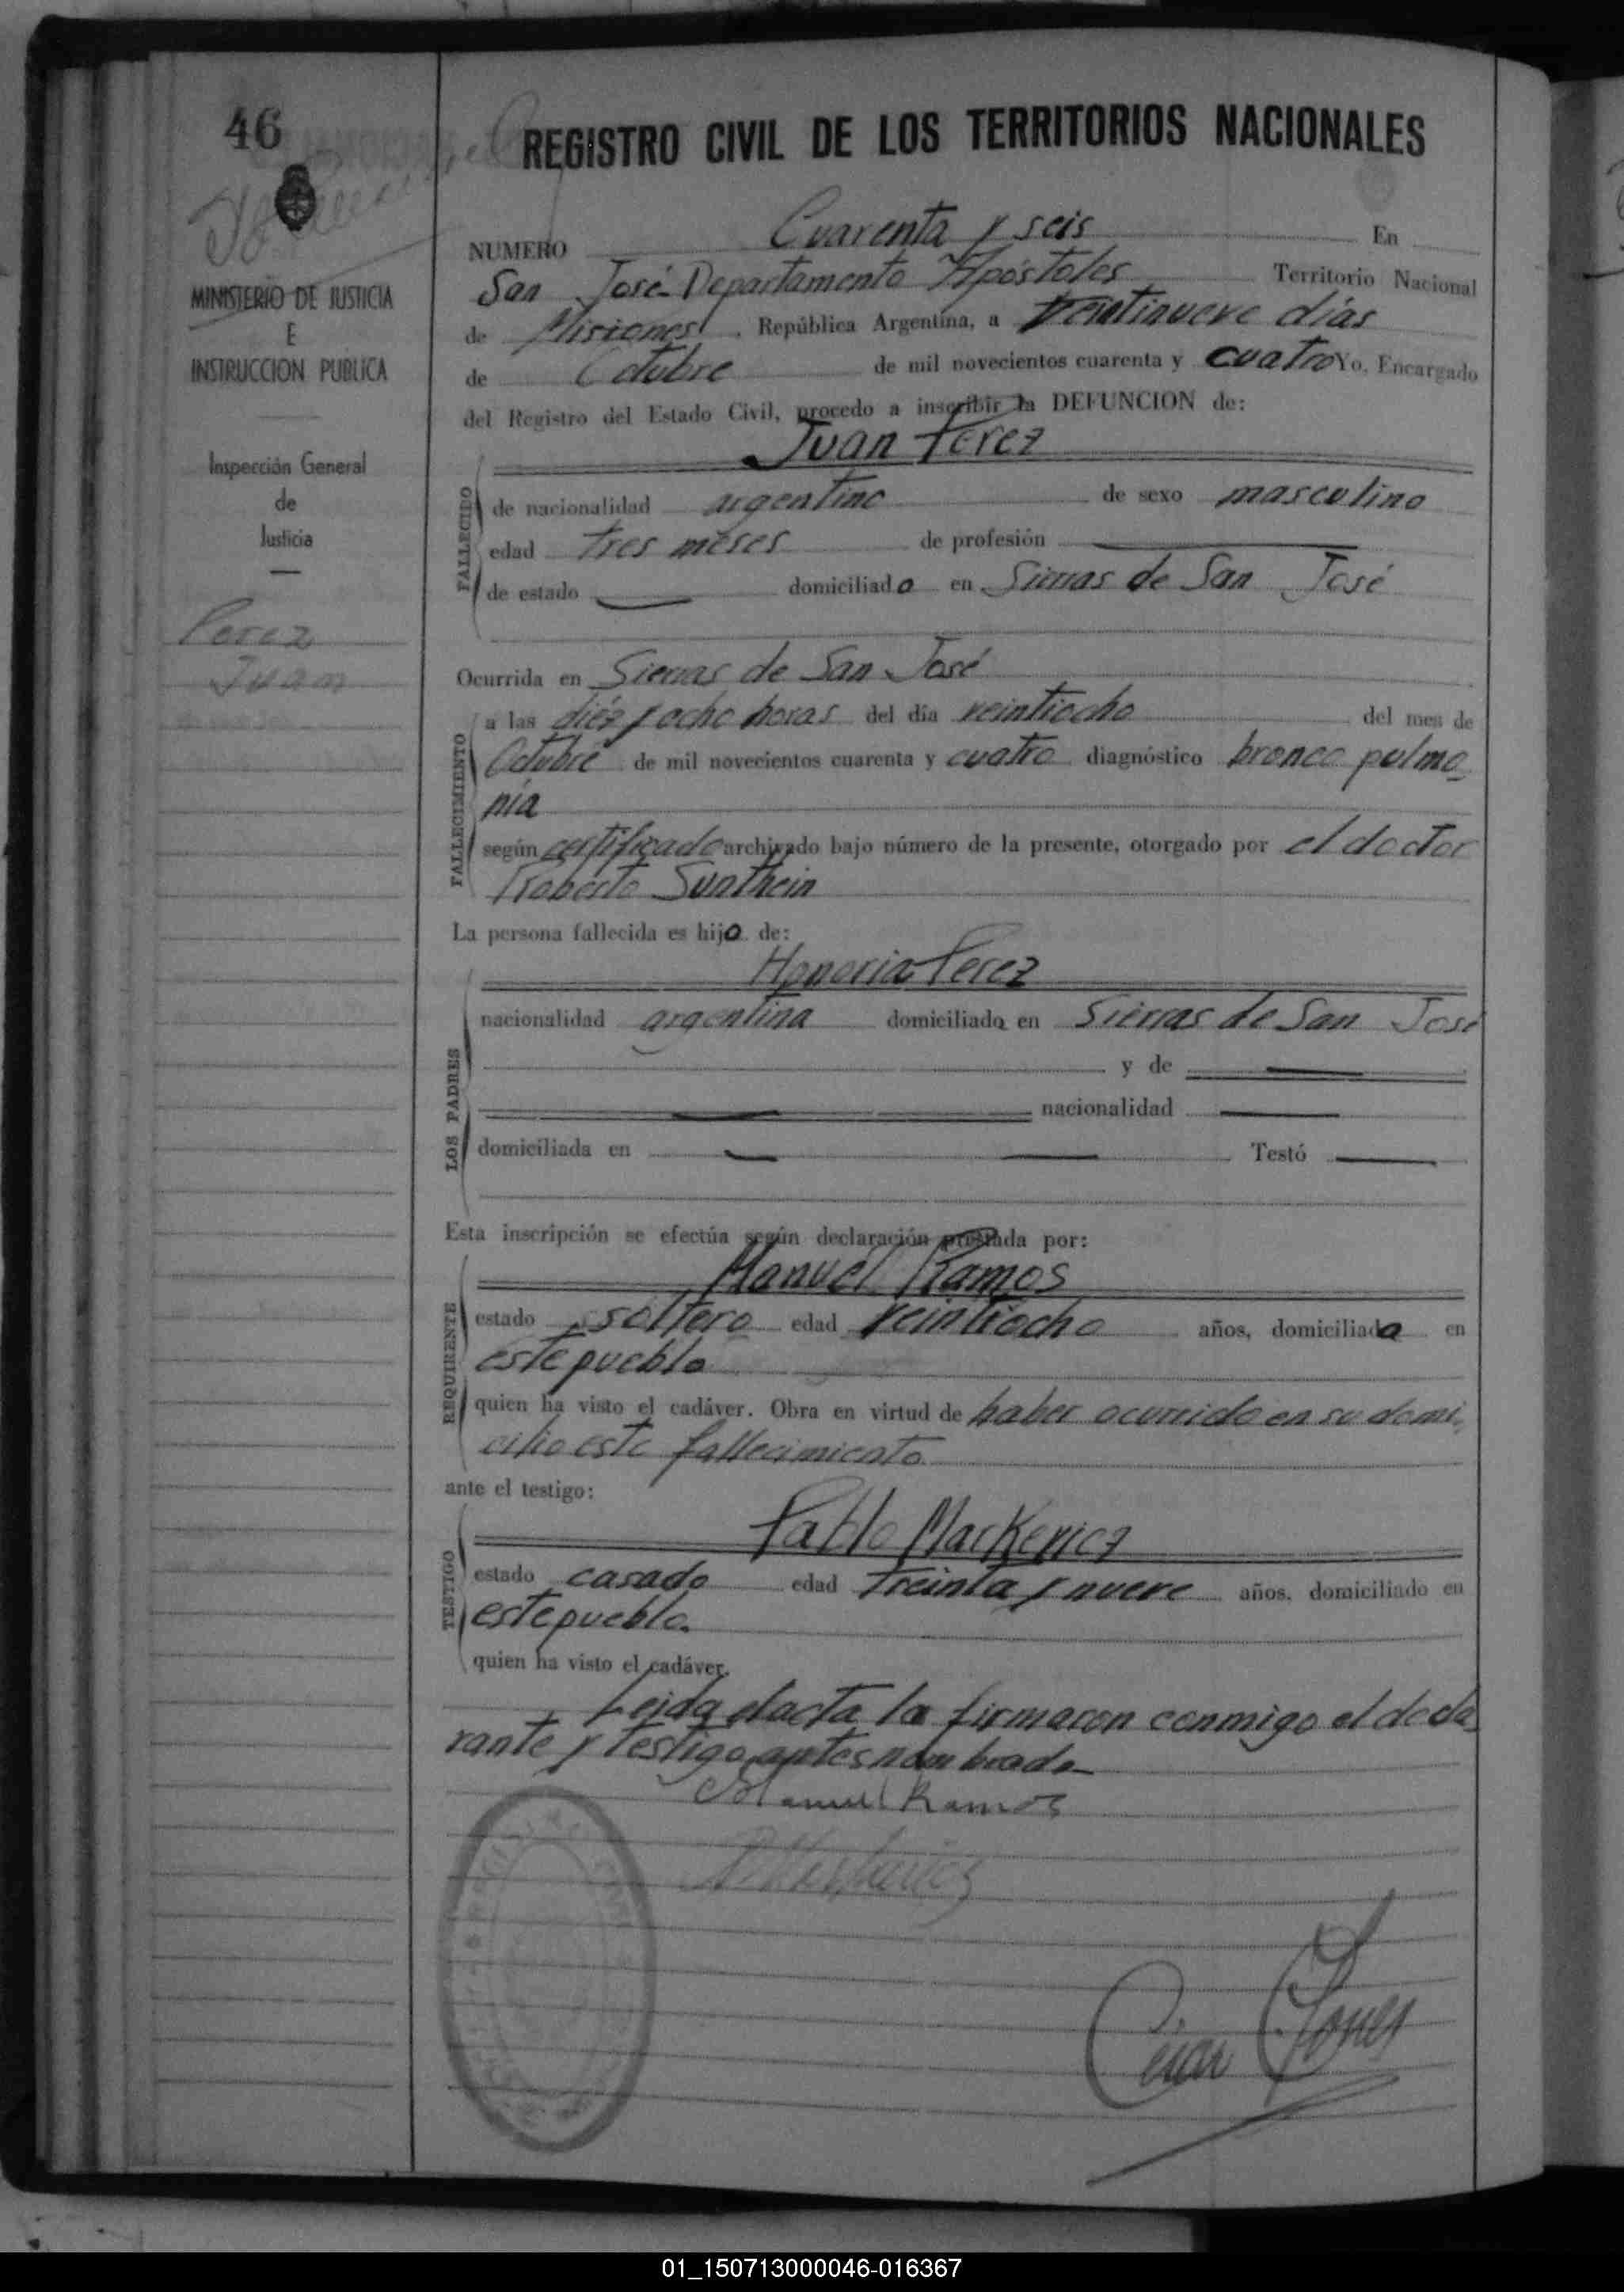 46
REGISTRO CIVIL DE LOS TERRITORIOS NACIONALES
MINISTERIO DE JUSTICIA
E
INSTRUCCION PUBLICA
Inspección General
de
Justicia
Perez
Juan
NUMERO Cuarenta y seis En
San José Departamento Apóstoles Territorio Nacional
de Misiones, República Argentina, a veintinueve días
de Octubre de mil novecientos cuarenta y cuatro Yo, Encargado
del Registro del Estado Civil, procedo a inscribir la DEFUNCION de:
Juan Perez
FALLECIDO
de nacionalidad argentino de sexo masculino
edad tres meses de profesión
de estado domiciliado en Sierras de San José
Ocurrida en Sierras de San José
FALLECIMIENTO
a las diéz y ocho horas del día veintiocho del mes de
Octubre de mil novecientos cuarenta y cuatro diagnóstico bronco pulmo-
nia
según certificado archivado bajo número de la presente, otorgado por el doctor
Roberto
La persona fallecida es hijo de:
Honoria Perez
LOS PADRES
nacionalidad argentina domiciliada en Sierras de San José
y de
nacionalidad
domiciliada en Testó
Esta inscripción se efectúa según declaración prestada por:
Manuel Ramos
REQUIRENTE
estado soltero edad veintiocho años, domiciliado en
este pueblo
quien ha visto el cadáver. Obra en virtud de haber ocurrido en su domi-
cilio este fallecimiento
ante el testigo:
Pablo Markevicz
TESTIGO
estado casado edad treinta y nueve años, domiciliado en
este pueblo.
quien ha visto el cadáver.
Leida el acta la firmaron conmigo el decla-
rante y testigo antes nombrado
Manuel Ramos
01_150713000046-016367